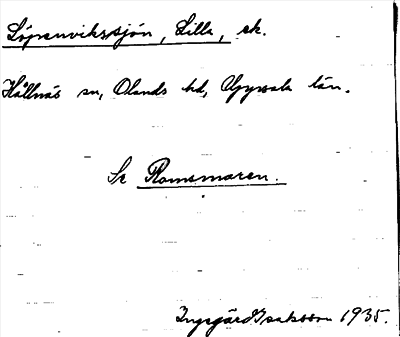 Löpsnviks,sjön, Lilla, sk.
Hållnäs sn, Olands hd, Uppsala län.
Se Romsmaren.
Ingegärd Isaksson 1935.